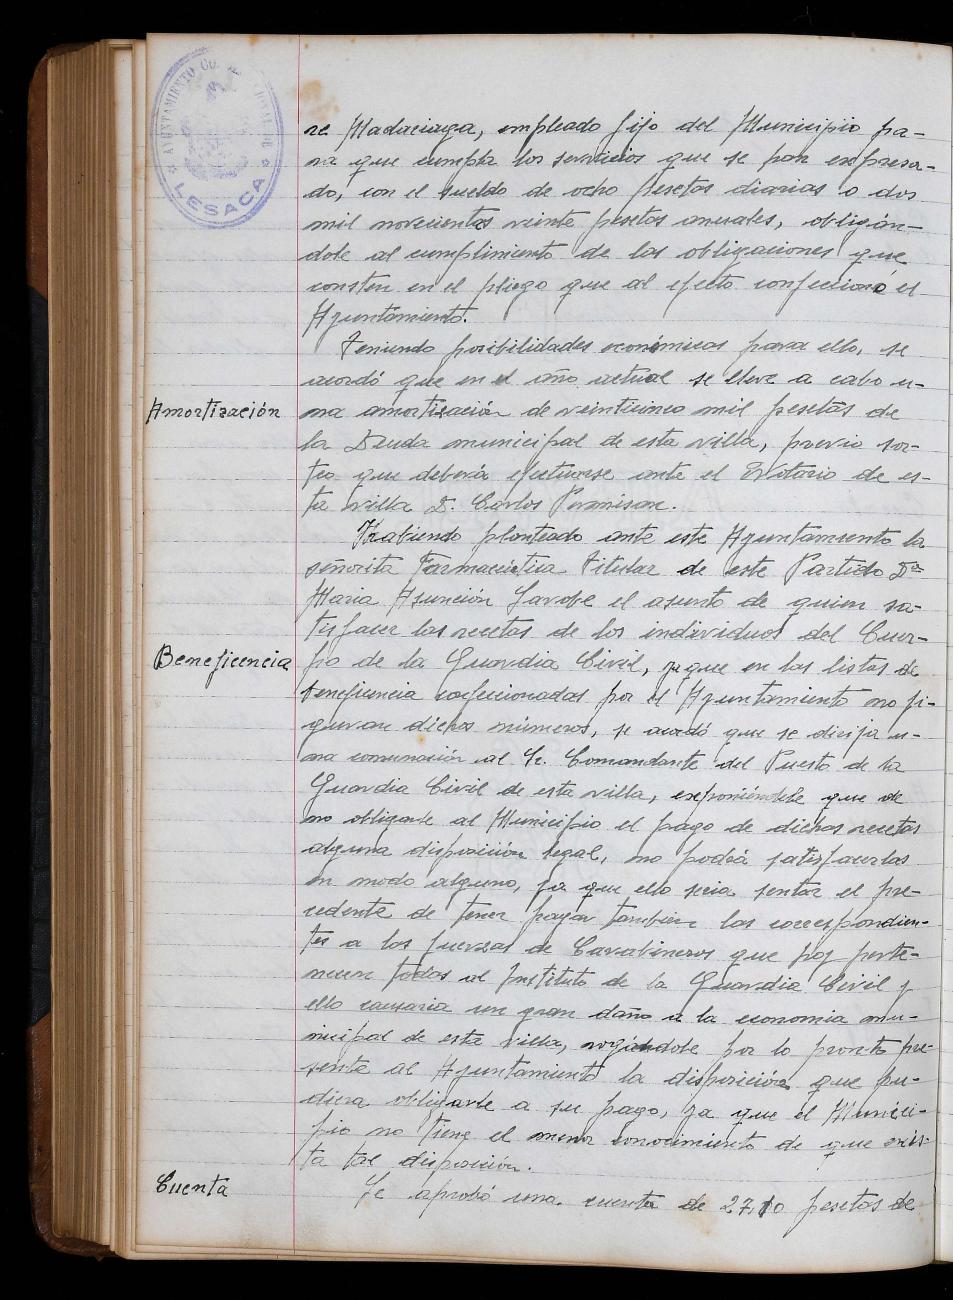 AYUNTAMIENTO CONSTITUCIONAL DE
LESACA
re Madariaga, empleado fijo del Municipio pa-
ra que cumpla los servicios que se han expresa-
do, con el sueldo de ocho pesetas diarias o dos
mil novecientas veinte pesetas anuales, obligán-
dole al cumplimiento de las obligaciones que
consten en el pliego que al efecto confeccionó el
Ayuntamiento.
Teniendo posibilidades económicas para ello, se
acordó que en el año actual se lleve a cabo u-
Amortización
na amortización de veinticinco mil pesetas de
la Deuda municipal de esta villa, previo sor-
teo que deberá efectuarse ante el Notario de es-
ta villa D. Carlos
Habiendo planteado ante este Ayuntamiento la
señorita Farmacéutica Titular de este Partido Dª
Maria Asunción el asunto de quien sa-
tisfacer las recetas de los individuos del Cuer-
Beneficencia
po de la Guardia Civil, ya que en las listas de
beneficencia confeccionadas por el Ayuntamiento no fi-
guran dichos números, se acordó que se dirija u-
na comunación al Sr. Comandante del Puesto de la
Guardia Civil de esta villa, exponiéndole que de
no obligarle al Municipio el pago de dichas recetas
alguna disposición legal, no podrá satisfacerlas
en modo alguno, ya que ello seria sentar el pre-
cedente de tener pagar tambien las correspondien-
tes a las fuerzas de Carabineros que hoy perte-
necen todas al Instituto de la Guardia Civil y
ello causaria un gran daño a la economia mu-
nicipal de esta villa, rogándole por lo pronto pre-
sente al Ayuntamiento la disposición que pu-
diera obligarle a su pago, ya que el Munici-
pio no tiene el menor conocimiento de que exis-
ta tal disposición.
Cuenta
Se aprobó una cuenta de 27,10 pesetas de